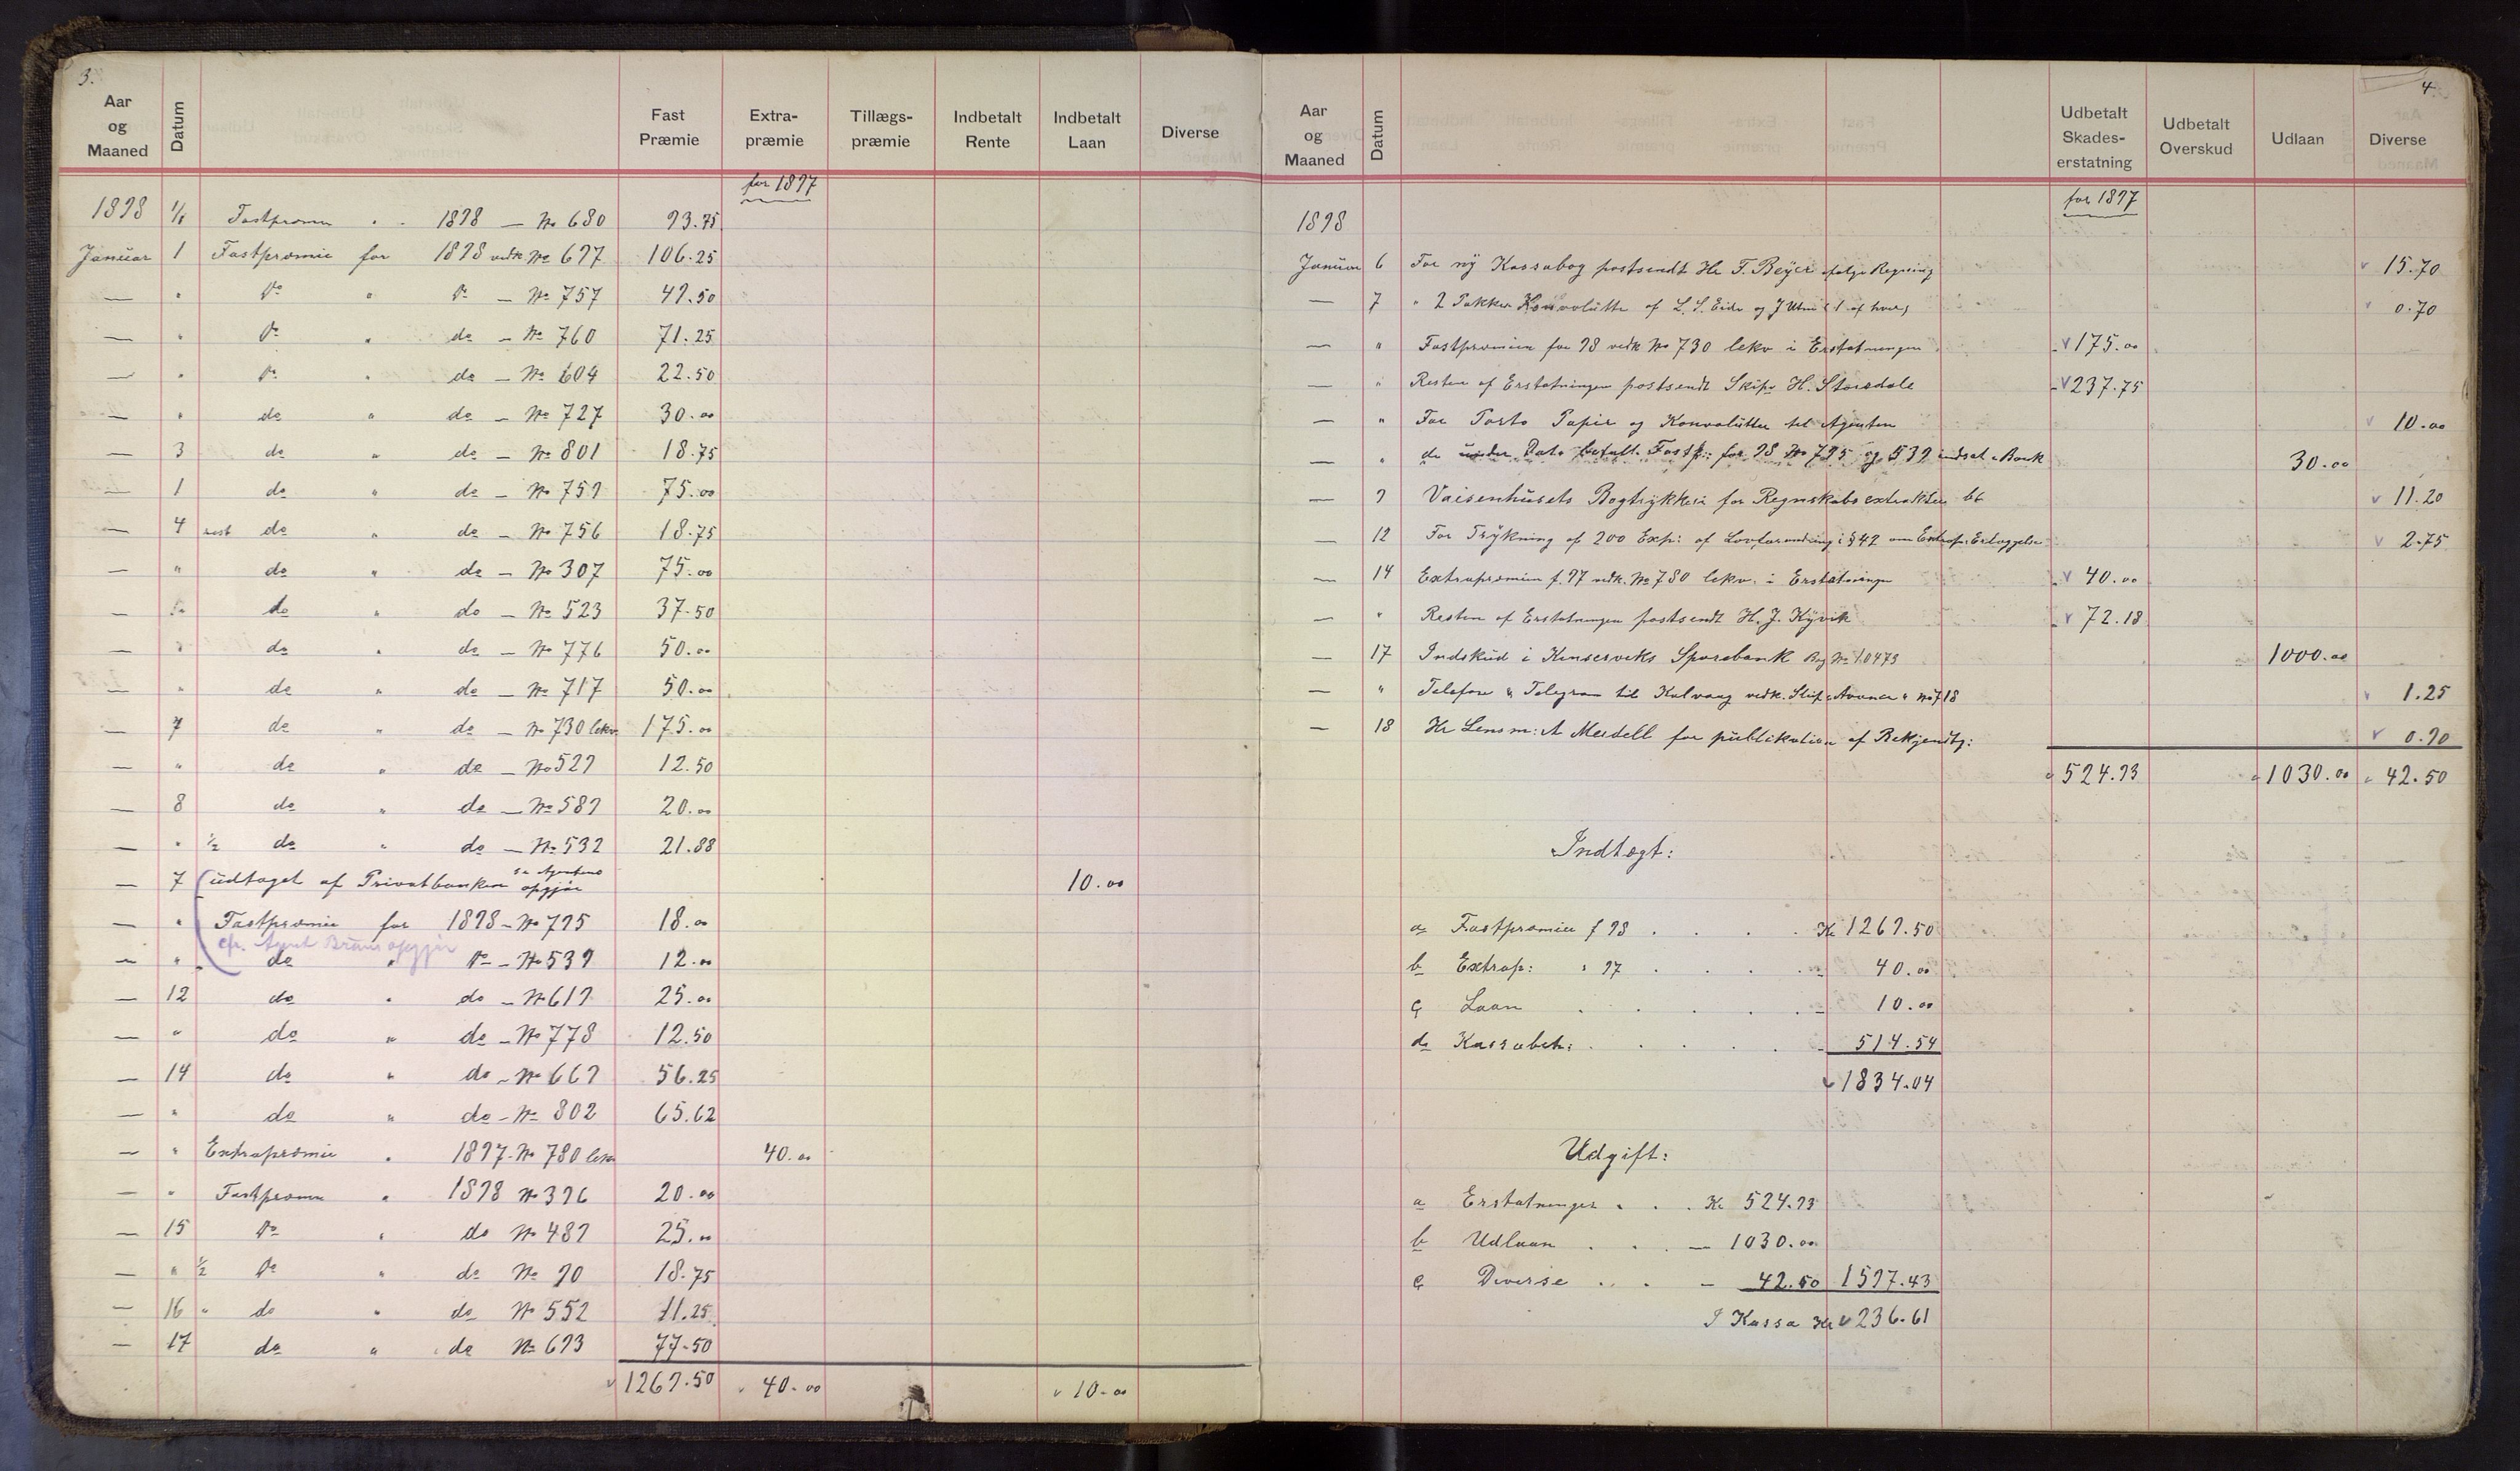 3.
Aar og Maaned | Datum | Fast Præmie | Extra-præmie | Tillægs-præmie | Indbetalt Rente | Indbetalt Laan | Diverse
for 1897
1898 1/1 Fastpræmie " 1898 — No 680 93.75
Januar 1 Fastpræmie for 1898 vedk No 697 106.25
— " Do " Do — No 757 49.50
— " Do " do — No 760 71.25
— " Do " do — No 604 22.50
— " do " do — No 727 30.00
— 3 do " do — No 801 18.75
— 1 do " do — No 759 75.00
— 4 rest do " do — No 756 18.75
— " do " do — No 307 75.00
— " do " do — No 523 37.50
— " do " do — No 776 50.00
— " do " do — No 717 50.00
— 7 do " do — No 730 lekv 175.00
— " do " do — No 529 12.50
— 8 do " do — No 589 20.00
— " 1/2 do " do — No 532 21.88
— 7 udtaget af Privatbanken se Agentens opgjør 10.00
— " Fastpræmie for 1898 — No 795 18.00
cfr. Agent Bruns opgjør
— " do " Do — No 539 12.00
— 12 do " do — No 619 25.00
— " do " do — No 778 12.50
— 14 do " do — No 669 56.25
— " do " do — No 802 65.62
— " Extrapræmie " 1897 - No 780 lekv 40.00
— " Fastpræmie " 1898 No 396 20.00
— 15 Do " do No 489 25.00
— " 1/2 Do " do No 90 18.75
— 16 " do " do No 552 11.25
— 17 do " do No 693 77.50
1269.50 40.00 10.00
4
Aar og Maaned | Datum | Udbetalt Skades-erstatning | Udbetalt Overskud | Udlaan | Diverse
for 1897
1898
Januar 6 For ny Kassabog postsendt Hr F. Beyer ifølge Regning 15.70
— 7 " 2 Pakker Konvolutter af L. S. Eide og J Utne (1 af hver) 0.70
— " Fastpræmien for 98 vedk No 730 lekv i Erstatningen 175.00
— " Resten af Erstatningen postsendt Skipr H. Storedale 237.75
— " For Porto Papir og Konvolutter til Agenten 10.00
— " de under Dato betalt Fastp: for 98 No 795 og 539 indsat i Bank 30.00
— 9 Vaisenhusets Bogtrykkeri for Regnskabsextrakter bt 11.20
— 12 For Trykning af 200 Exp: af Lovforandring i § 42 om Extrap: Erlæggelse 2.75
— 14 Extrapræmien f. 97 vedk. No 780 lekv. i Erstatningen 40.00
— " Resten af Erstatningen postsendt H. J. Kyvik 72.18
— 17 Indskud i Kinserviks Sparebank Bog No 10473 1000.00
— " Telefon & Telegram til Kalvaag vedk. Skip "Avance" No 718 1.25
— 18 Hr Lensm: A Meidell for publikation af Bekjendtg: 0.90
524.93 1030.00 42.50
Indtægt:
a Fastpræmier f 98 . . . . Kr 1269.50
b Extrap: " 97 . . . . - 40.00
c Laan . . . . . - 10.00
d Kassabeh: . . . . . - 514.54
1834.04
Udgift:
a Erstatninger . . . Kr 524.93
b Udlaan . . . — 1030.00
c Diverse . . . — 42.50 1597.43
I Kassa Kr 236.61